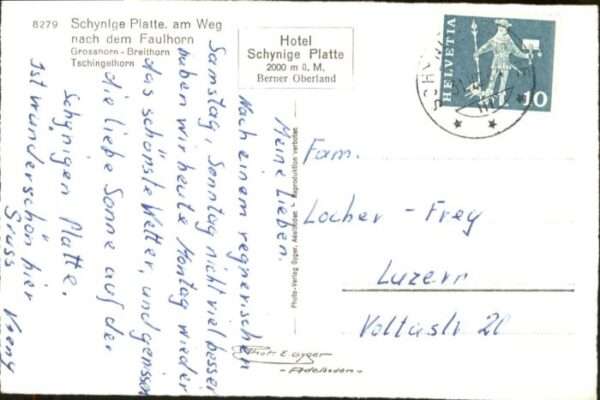 8279 Schynige Platte, am Weg
nach dem Faulhorn
Grosshorn - Breithorn
Tschingelhorn
Hotel
Schynige Platte
2000 m ü. M.
Berner Oberland
HELVETIA
10
Meine Lieben.
Nach einem regnerischen
Samstag, Sonntag nicht viel besser
haben wir heute Montag wieder
das schönste Wetter, und geniessen
die liebe Sonne auf der
Schynigen Platte.
Ist wunderschön hier
Gruss Vreny
Photo-Verlag Gyger, Adelboden - Reproduktion verboten
Fam.
Locher - Frey
Luzern
Voltastr 20
Photo E Gyger
- Adelboden -